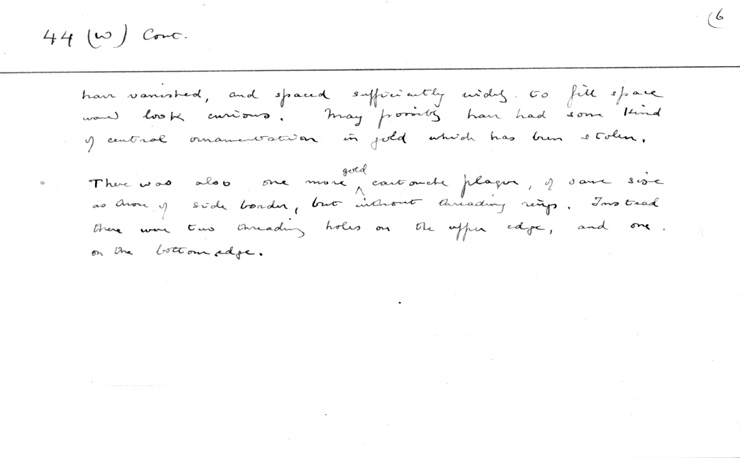 (6
44 (W) Cont.
have vanished, and spaced sufficiently widely to fill space
would look curious. May possibly have had some kind
of central ornamentation in gold which has been stolen.
There was also one more gold cartouche plaque, of same size
as those of side border, but without threading rings. Instead
there were two threading holes on the upper edge, and one
on the bottom edge.